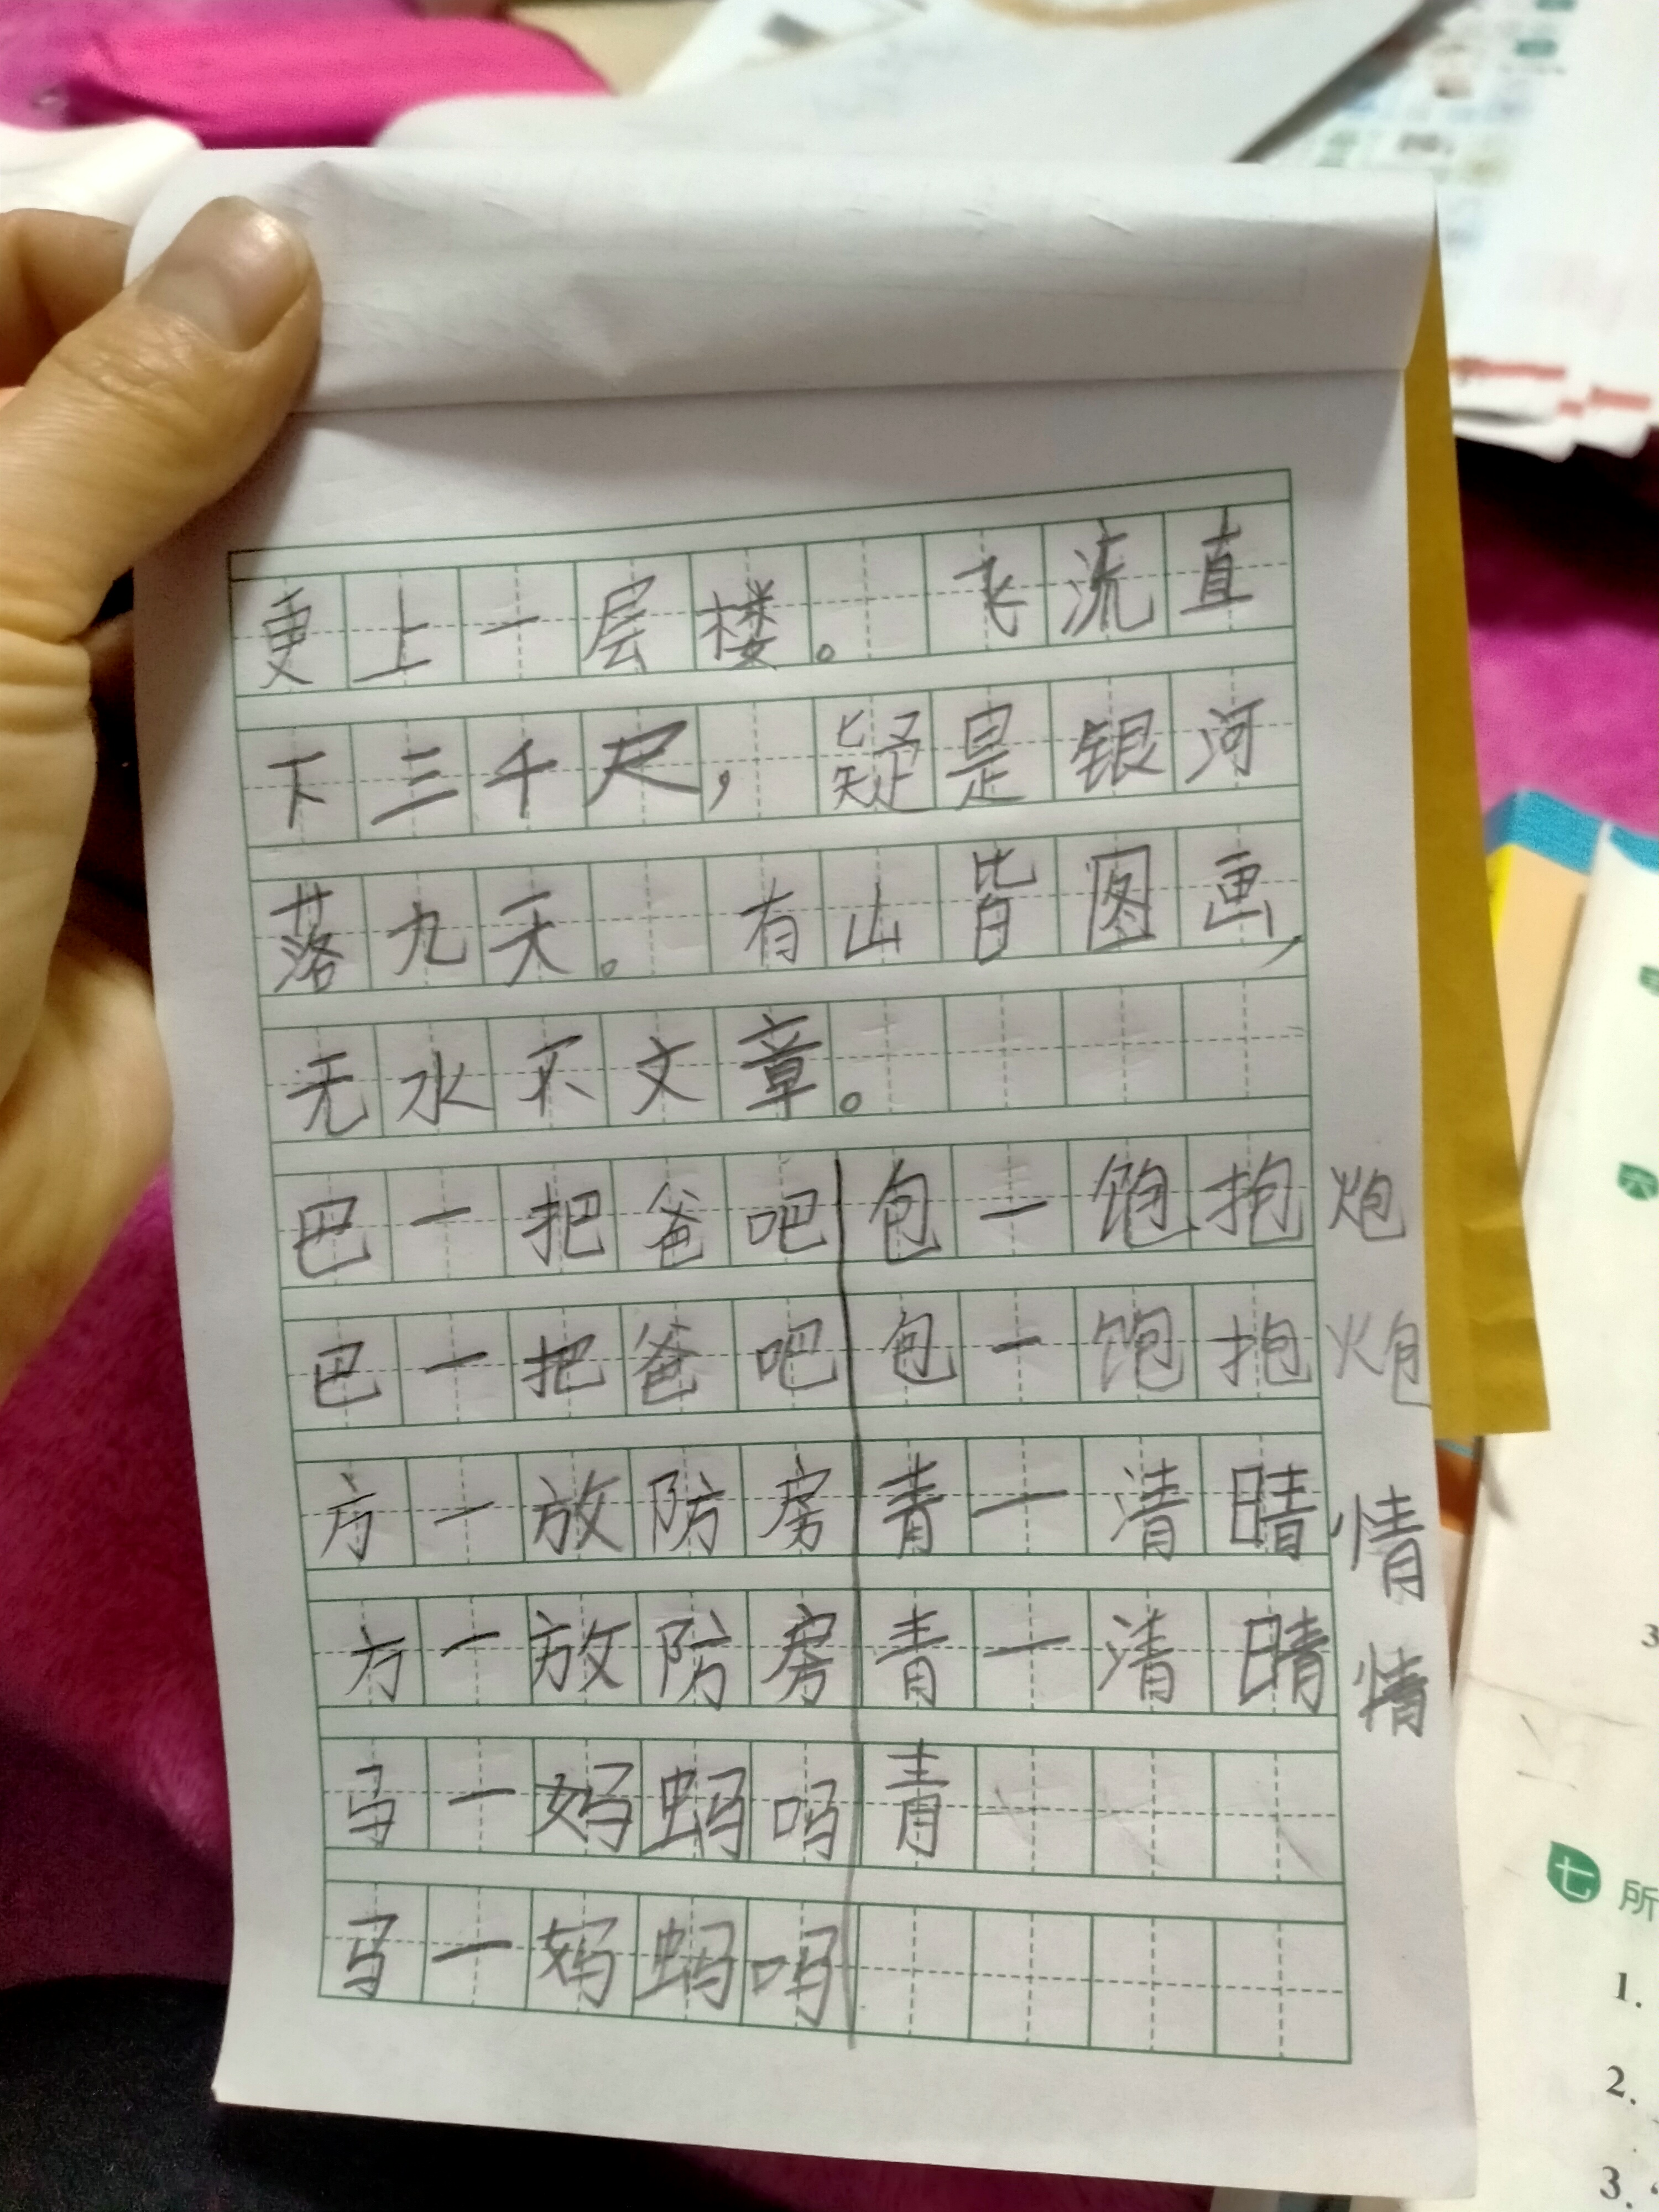 更上一层楼。飞流直
下三千尺，疑是银河
落九天。有山皆图画，
无水不文章。
巴一把爸吧包一饱抱炮
巴一把爸吧包一饱抱炮
方一放防房青一清晴情
方一放防房青一清晴情
马一妈蚂吗青
马一妈蚂吗
七 所
1.
2.
3.